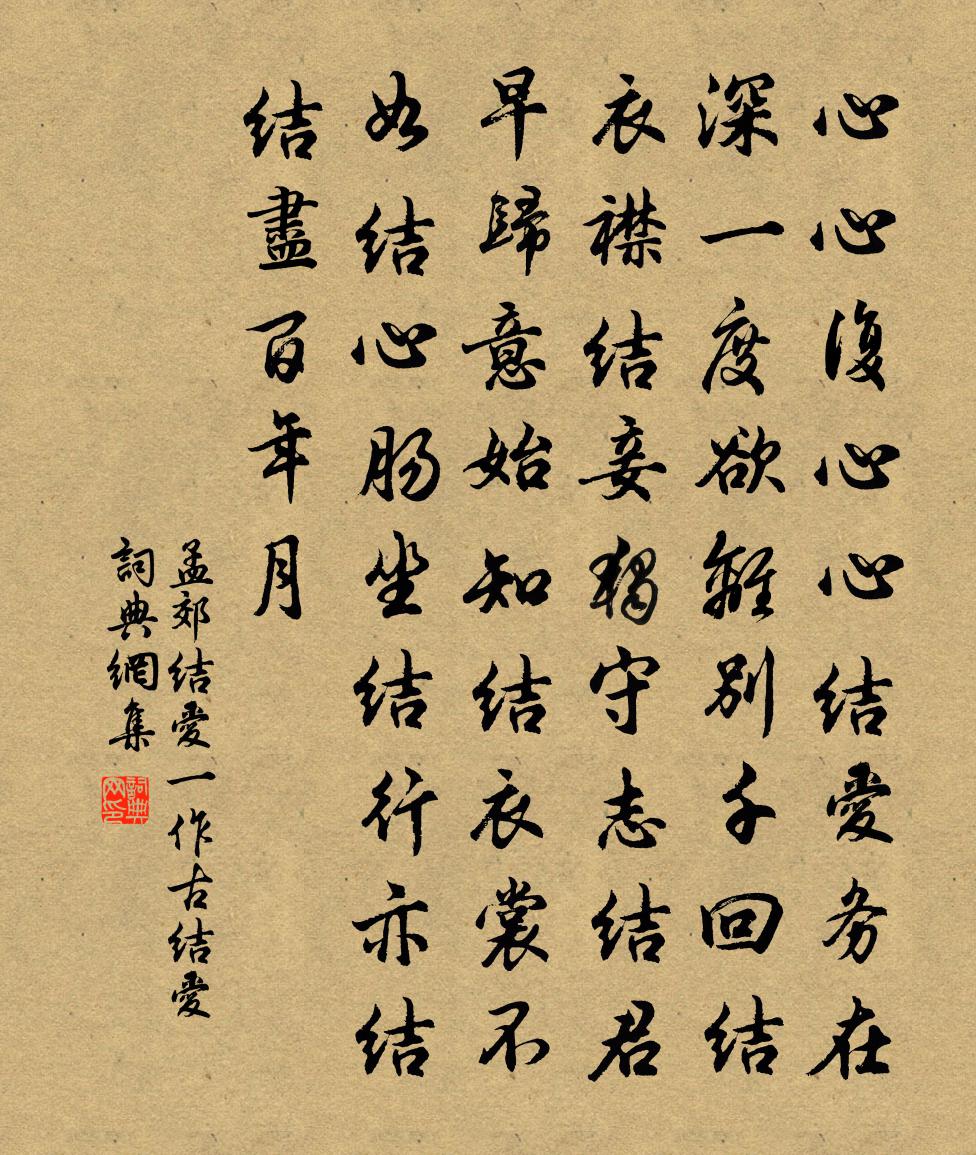 心心復心心結愛务在
深一度欲離別千回結
衣襟結妾獨守志結君
早歸意始知結衣裳不
如結心肠坐結行亦結
結盡百年月
孟郊結愛一作古結愛
詞典網集
詞典网印